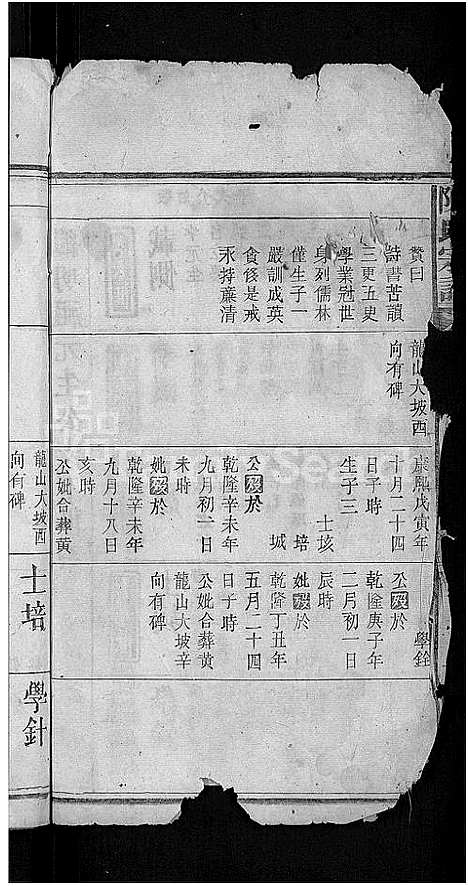 贊曰
詩書苦讀
三更五史
學業冠世
身列儒林
僅生子一
嚴訓成英
食餒是戒
永持廉清
龍山大坡西
向有碑
康熙戊寅年
十月二十四
日子時
生子三
士垓
培
城
公歿於
乾隆辛未年
九月初一日
未時
妣歿於
乾隆辛未年
九月十八日
亥時
公妣合葬黄
學銓
公歿於
乾隆庚子年
二月初一日
辰時
妣歿於
乾隆丁丑年
五月二十四
日子時
公妣合葬黄
龍山大坡辛
向有碑
龍山大坡西
向有碑
士培
學針